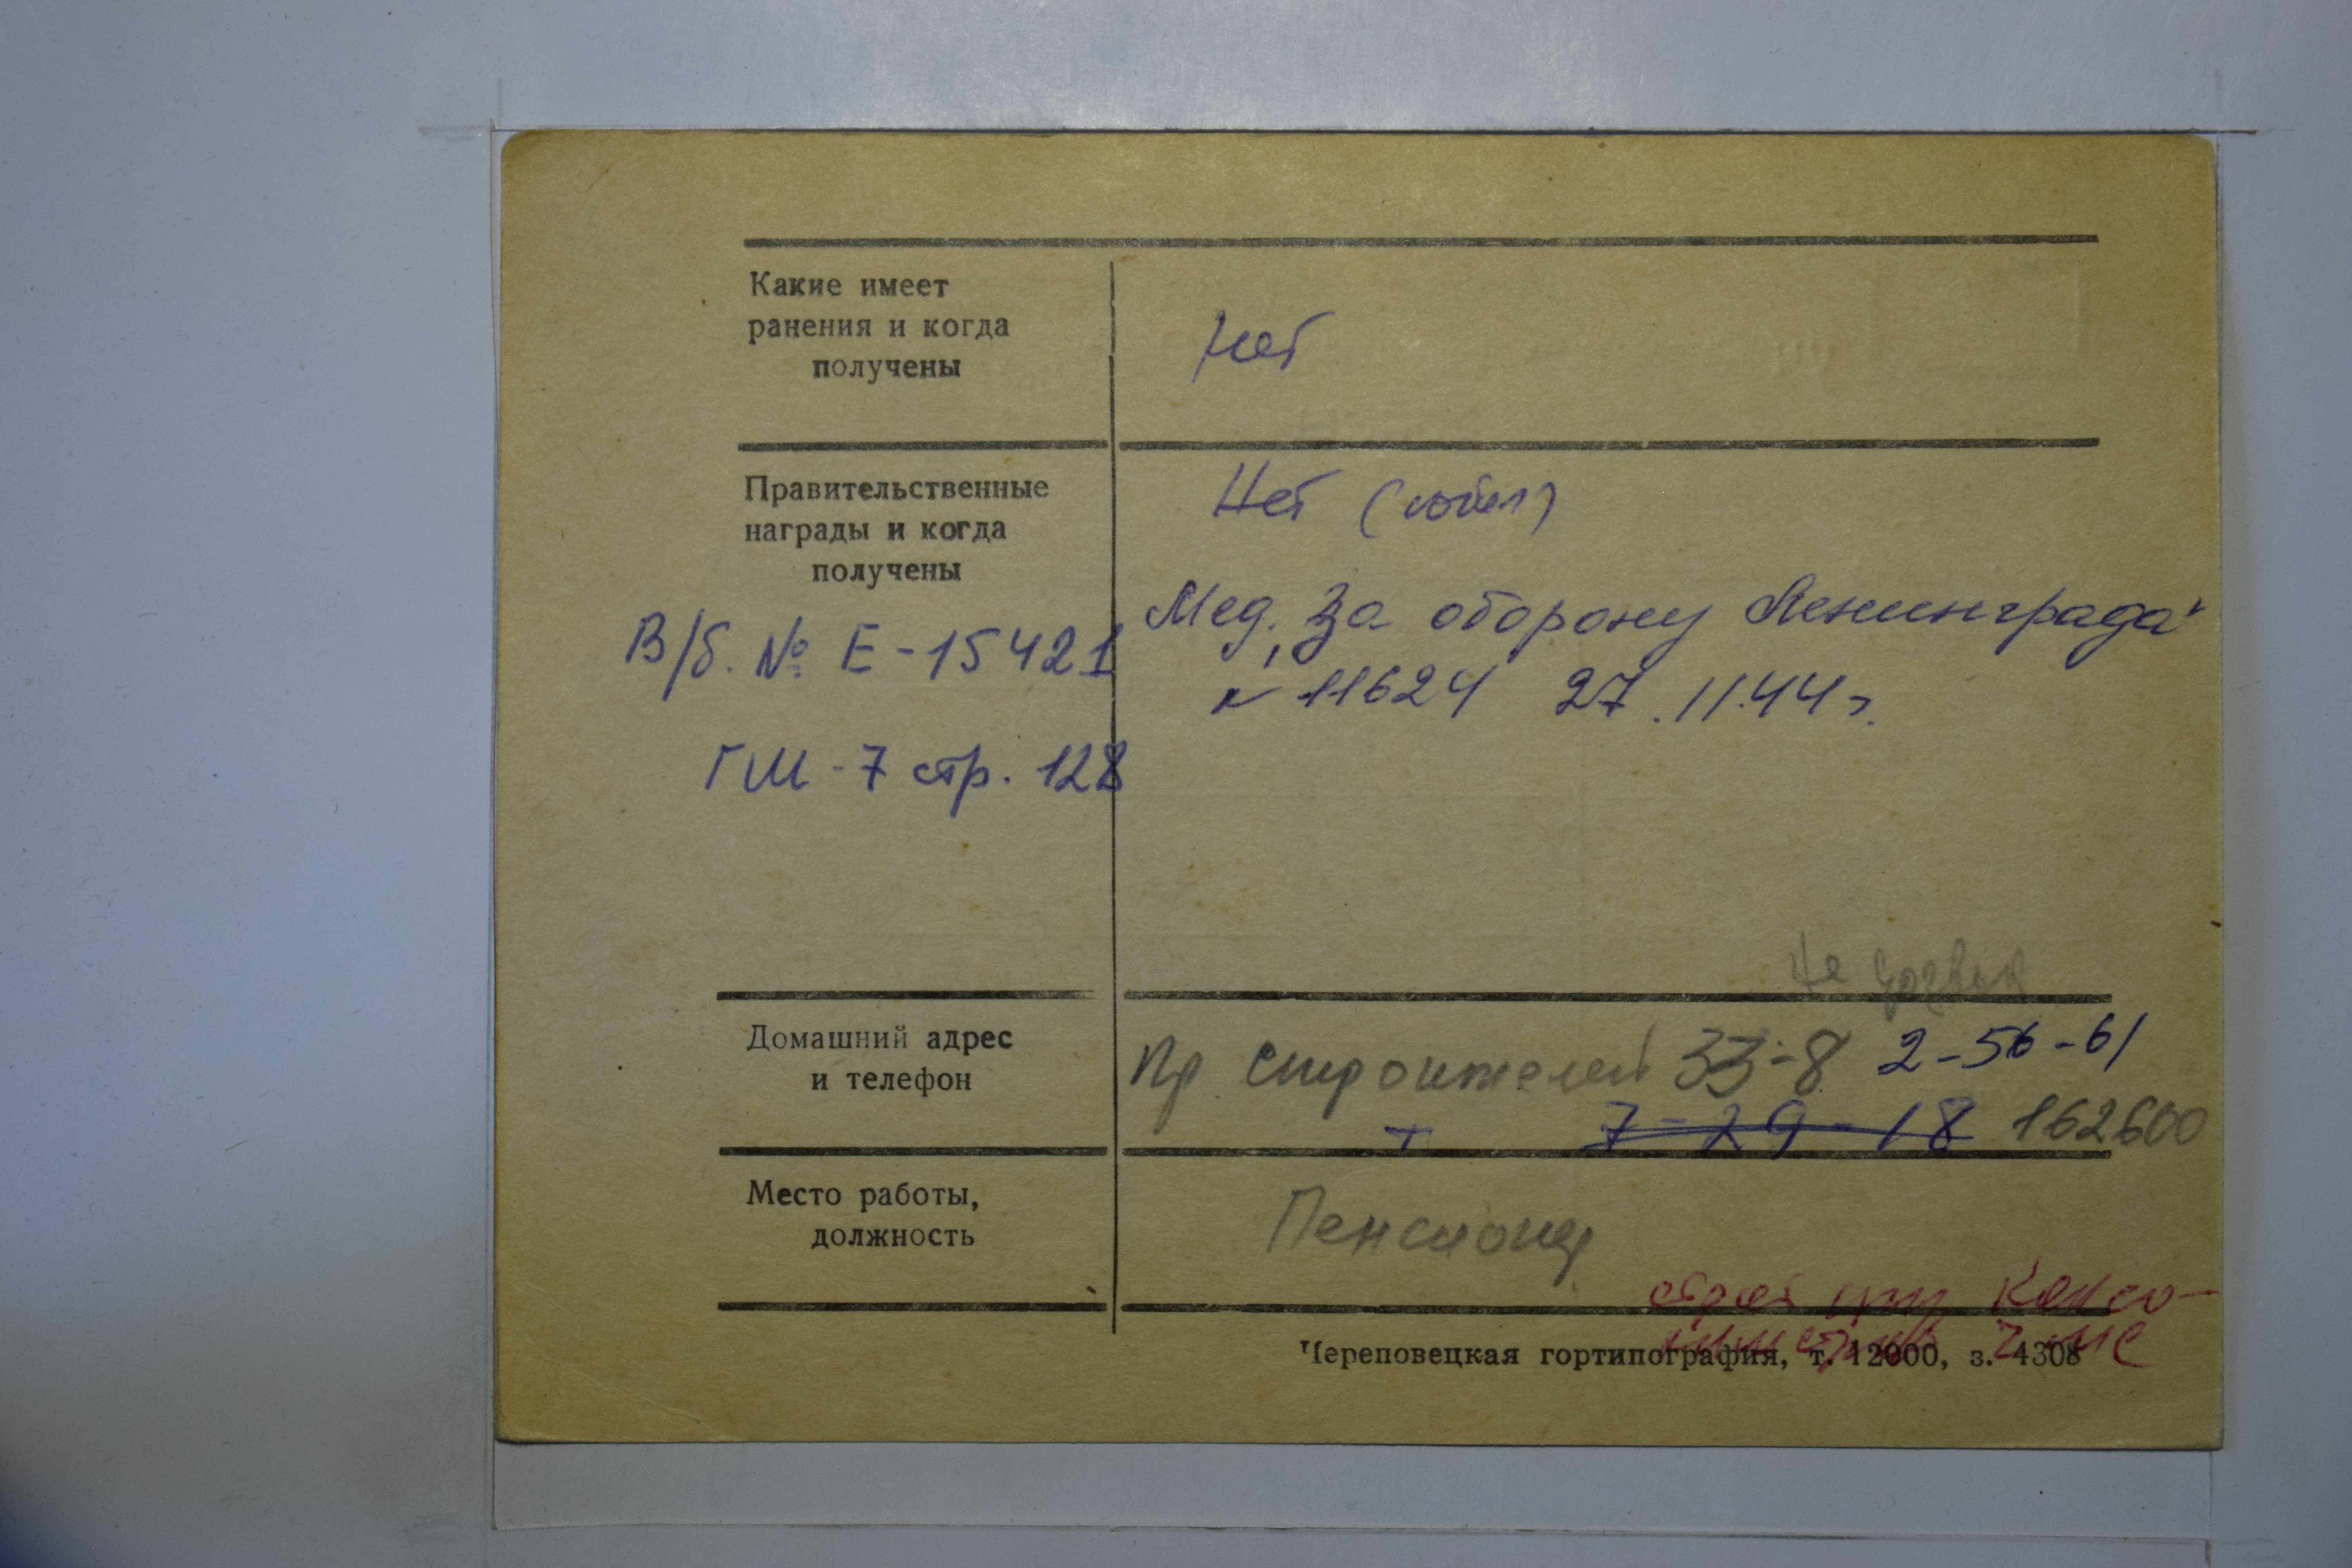 Какие имеет
ранения и когда
получены
Нет
Правительственные
награды и когда
получены
Нет (юбил)
Мед. "За оборону Ленинграда"
№ 11624 27.11.44 г.
В/б. № Е-15421
ГШ-7 стр. 128
Домашний адрес
и телефон
Не
Пр Строителей 33-8 2-56-61
т 7-29-18 162600
Место работы,
должность
Пенсионер
Череповецкая гортипография, т. 12000, з. 4308